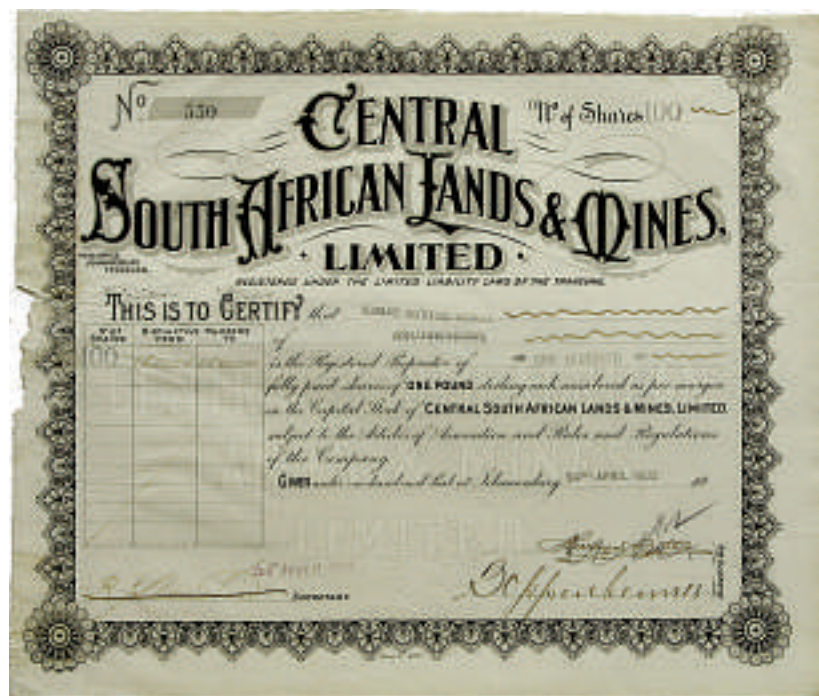 No 550
No of Shares 100
CENTRAL
SOUTH AFRICAN LANDS & MINES,
LIMITED
REGISTERED UNDER THE LIMITED LIABILITY LAWS OF THE TRANSVAAL
THIS IS TO CERTIFY that
No OF SHARES DISTINCTIVE NUMBERS FROM TO
of
100
is the Registered Proprietor of ONE HUNDRED
fully paid shares of ONE POUND sterling each numbered as per margin
in the Capital Stock of CENTRAL SOUTH AFRICAN LANDS & MINES, LIMITED.
subject to the Articles of Association and Rules and Regulations
of the Company.
GIVEN under our hand and Seal at Johannesburg APRIL 19
Secretary